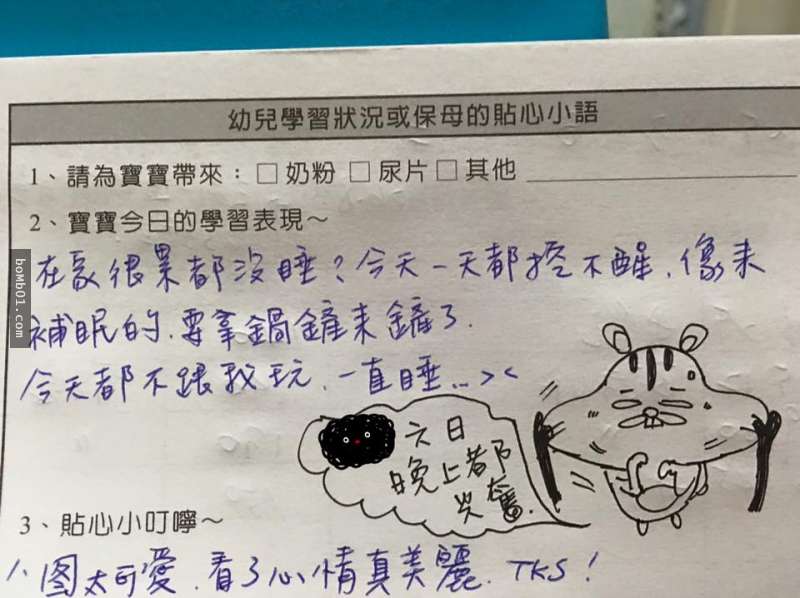 幼兒學習狀況或保母的貼心小語
1、請為寶寶帶來：□奶粉 □尿片□其他
2、寶寶今日的學習表現～
在家很累都沒睡？今天一天都挖不醒，像來
補眠的，要拿鍋鏟來鏟了.
今天都不跟我玩，一直睡...><
六日
晚上都
興奮.
3、貼心小叮嚀～
1、圖太可愛.看了心情真美麗. TKS！
boMb01.com